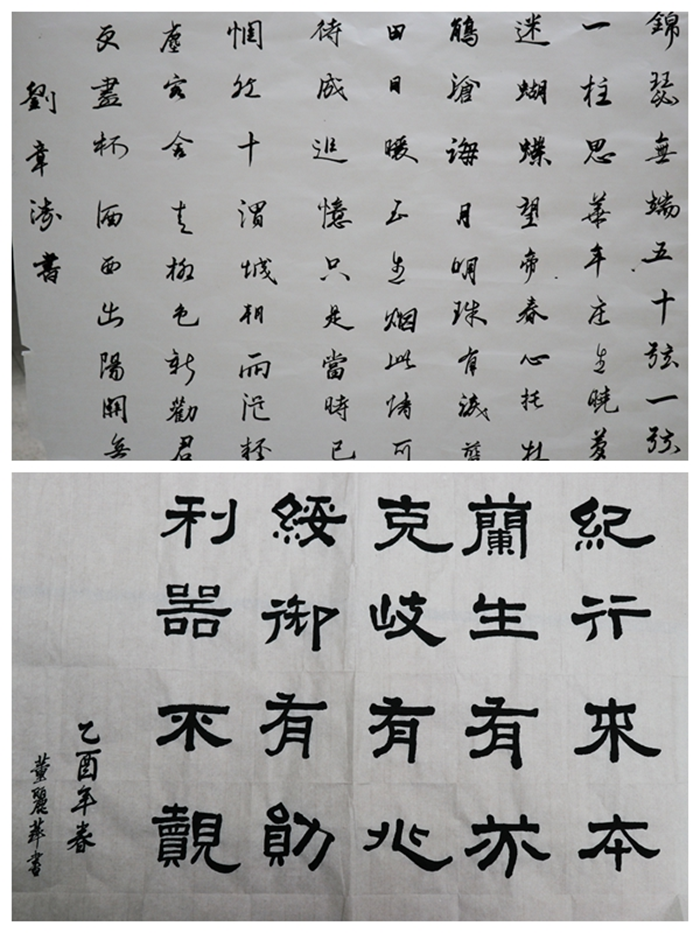 錦瑟無端五十弦一弦
一柱思華年庄生曉夢
迷蝴蝶望帝春心托杜
鵑滄海月明珠有淚藍
田日暖玉生烟此情可
待成追憶只是當時已
惘然十渭城朝雨浥輕
塵客舍青柳色新勸君
更盡杯酒西出陽關無
劉章濤書
紀行求本
蘭生有芬
克岐有兆
綏御有勛
利器不覿
乙酉年春
董麗華書